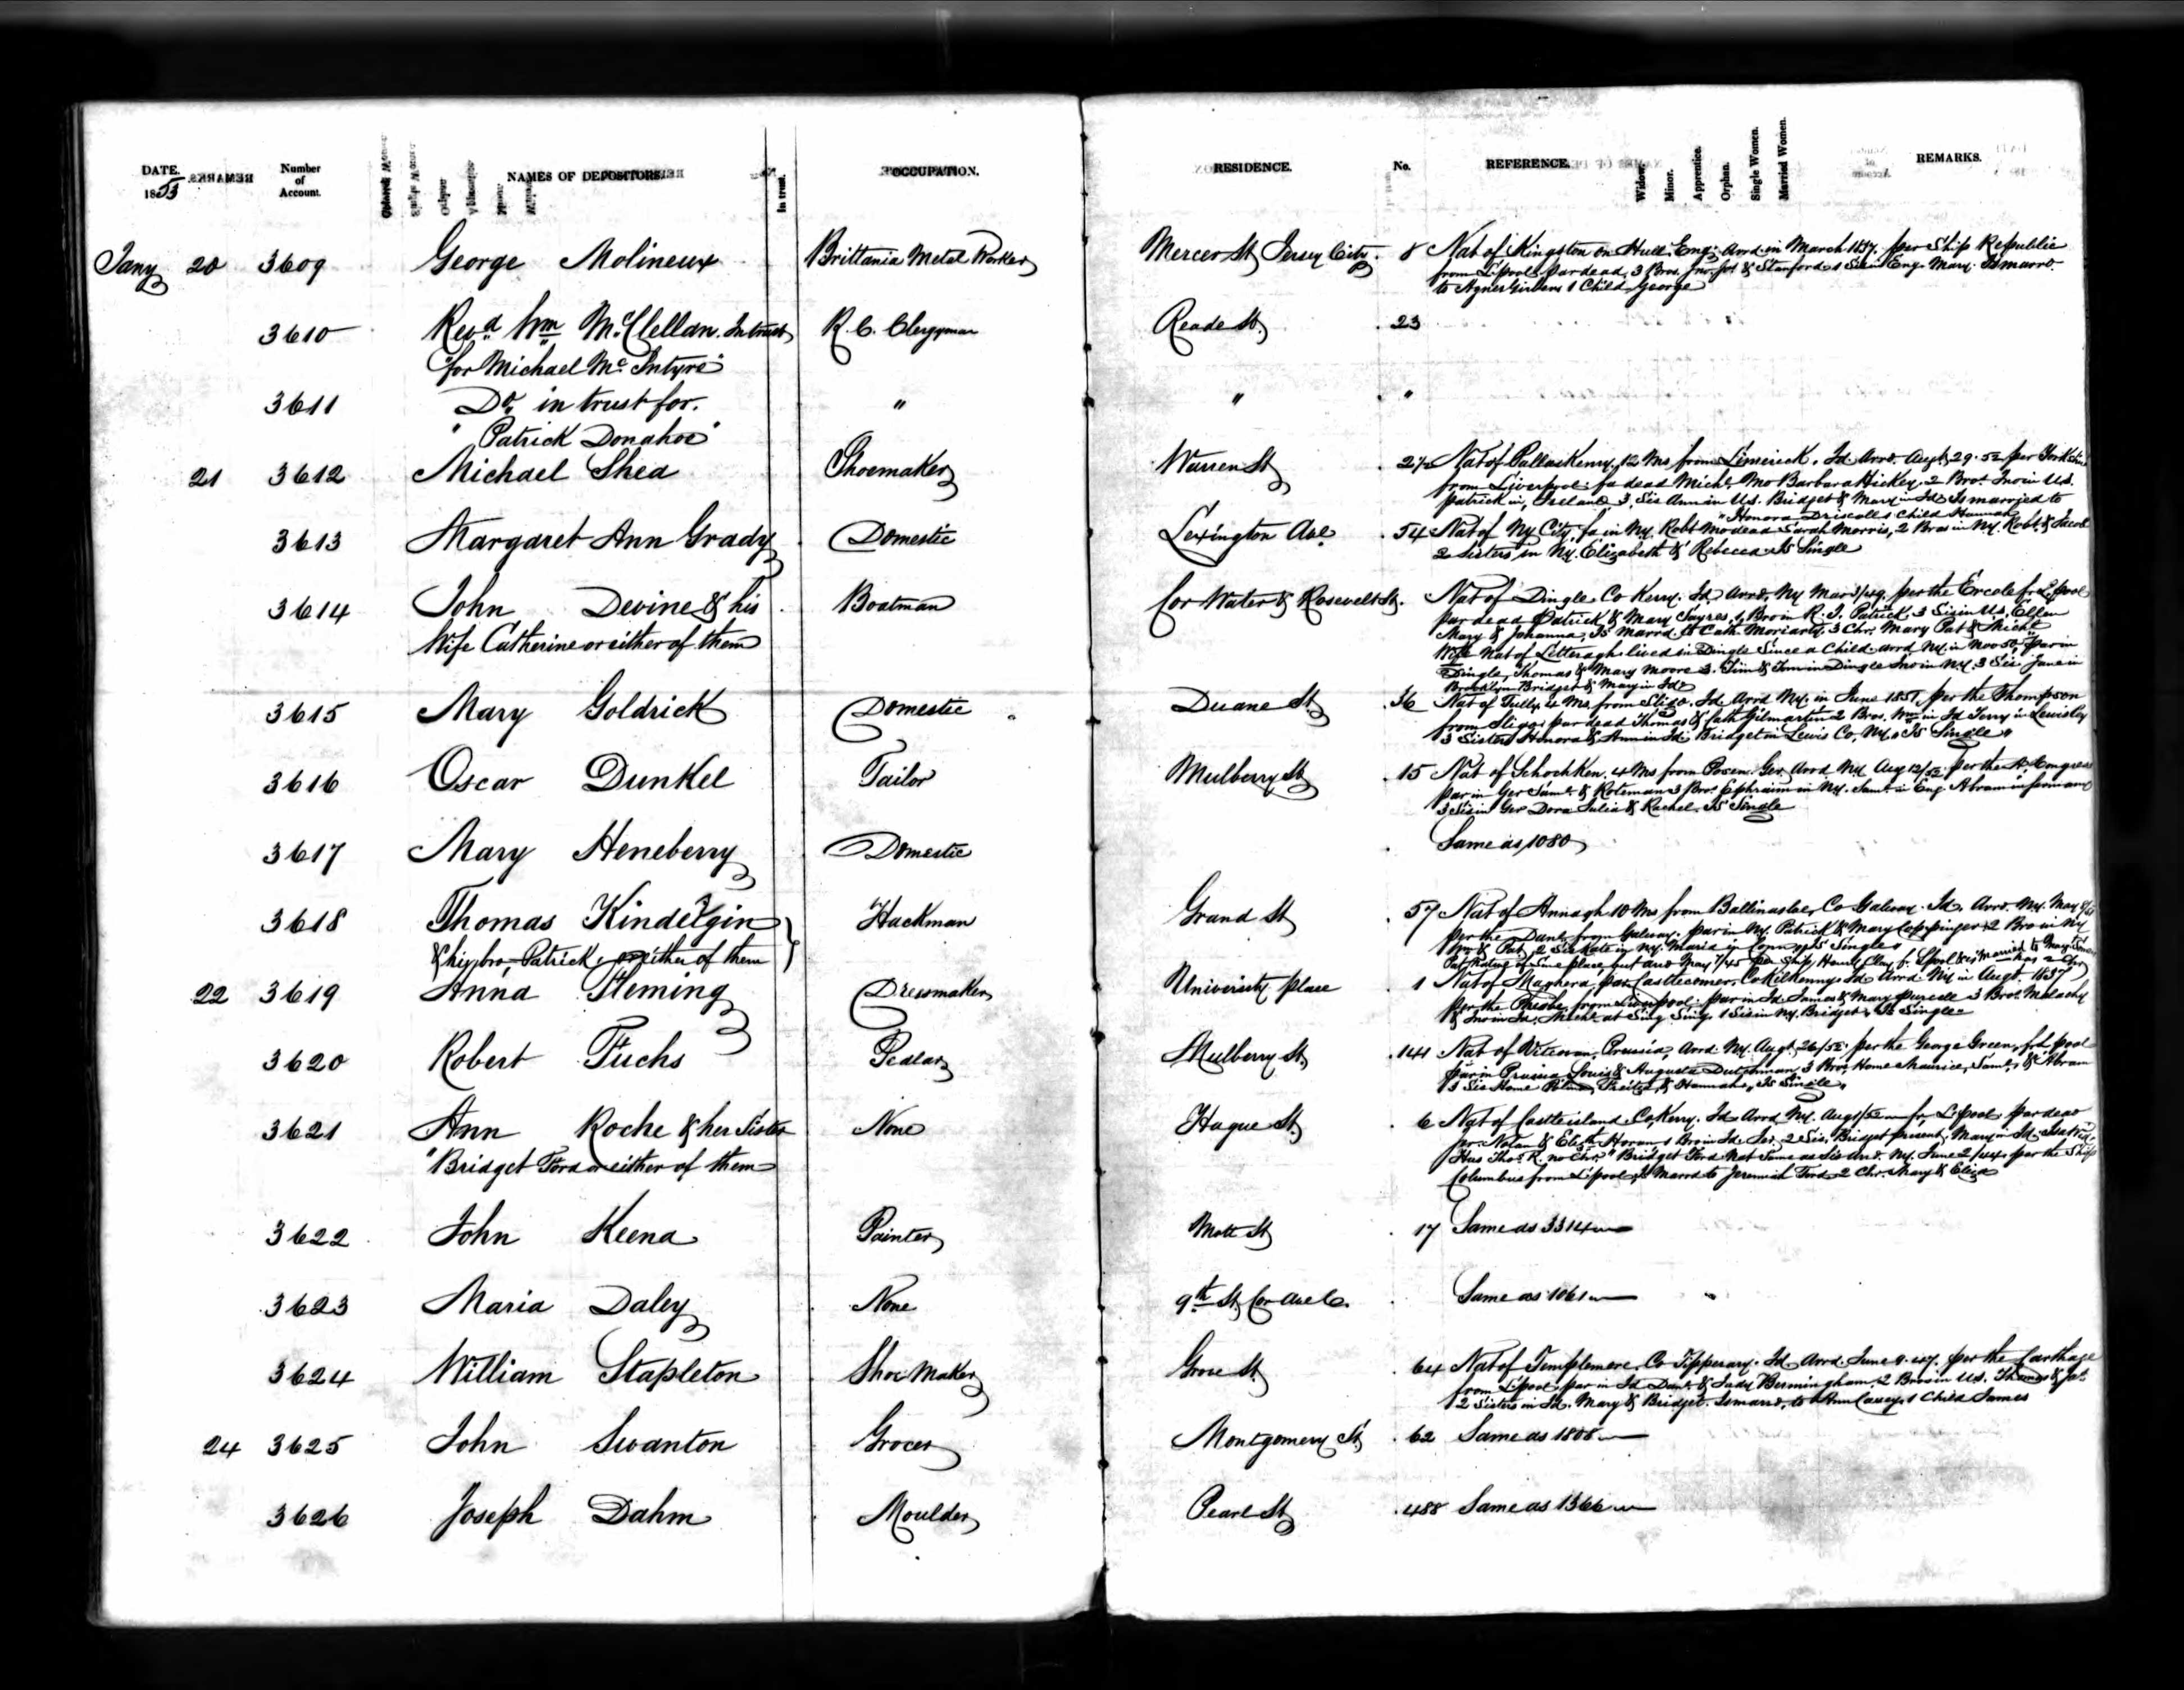 DATE. 1853 Number of Account. NAMES OF DEPOSITORS. In trust. OCCUPATION. RESIDENCE. No. REFERENCE. Widow. Minor. Apprentice. Orphan. Single Women. Married Women. REMARKS.
Jany 20 3609 George Molineux Brittania Metal Worker Mercer St Jersey City 8 Nat of Kingston on Hull Eng. Arrd in March 1837 per Ship Republic
from L'pool par dead, 3 Bros. Jno. Jos & Stanford 1 Sis in Eng. Mary. Is marrd.
to Agnes 1 Child George
3610 Revd. Wm McClellan. In trust R. C. Clergyman Reade St. 23
"for Michael McIntyre"
3611 Do. in trust for. " " "
" Patrick Donahoe"
21 3612 Michael Shea Shoemaker Warren St 27½ Nat of Pallaskenry, 12 Ms from Limerick. Id. Arrd. Augt 29. 52 per Yorkshire
from Liverpool: fa dead Michl. Mo Barbara Hickey. 2 Bros Jno in U.S.
Patrick in Ireland 3 Sis Ann in U.S. Bridget & Mary in Id. Is married to
"Honora Driscoll 1 Child Hannah
3613 Margaret Ann Grady Domestic Lexington Ave 54 Nat of Ny City, fa in Ny. Robt Mo dead Sarah Morris, 2 Bros in Ny. Robt. & Jacob
2 Sisters in Ny. Elizabeth & Rebecca Is Single
3614 John Devine & his Boatman Cor Water & Rosevelt St. Nat of Dingle Co Kerry. Id. Arrd. Ny Mar 3/49. per the Ercole fr L'pool
Wife Catherine or either of them par dead Patrick & Mary Sayres, 1 Bro in R. I. Patrick 3 Sis in U.S. Ellen
Mary & Johanna, Is Marrd. to Cath. Moriarty. 3 Chr. Mary Pat & Michl
Wife Nat of Letteragh lived in Dingle Since a Child. arrd Ny. in Nov 50, par in
Dingle, Thomas & Mary Moore 3. Tim & Tom in Dingle Jno in Ny. 3 Sis Jane in
Brooklyn Bridget & Mary in Id.
3615 Mary Goldrick Domestic Duane St 36 Nat of Tully 4 Ms. from Sligo. Id. Arrd Ny. in June 1851, per the Thompson
from Sligo: par dead Thomas & Cath Gilmartin 2 Bros. Wm in Id Terry in Lewis Co
3 Sisters Honora & Ann in Id. Bridget in Lewis Co, Ny. Is Single
3616 Oscar Dunkel Tailor Mulberry St 15 Nat of Schochken. 4 Ms from Posen. Ger. Arrd Ny Aug 12/52 per the A. Congress
par in Ger Saml. & 3 Bros. Ephraim in Ny. Saml. in Eng. Abram in Germany
3 Sis in Ger Dora Julia & Rachel. Is Single
3617 Mary Heneberry Domestic Same as 1080
3618 Thomas Kindergin Hackman Grand St 57 Nat of Annagh 10 Ms from Ballinasloe, Co Galway. Id. Arrd. Ny. May
& his bro, Patrick or either of them per the from Galway. par in Ny. Patrick & Mary Coppinger 2 Bro in Ny
Wm & Pat, 2 Sis Kate in Ny. Maria in Conn. Is Single
Pat Native of Same place, but arrd May 7/45 per Ship Henry Clay fr. L'pool & is married to Mary has 2 Chr
22 3619 Anna Fleming Dressmaker University place 1 Nat of Maghera par Castlecomer. Co Kilkenny. Id. Arrd. Ny in Augt. 1837
per the Phebe from Liverpool. par in Id James & Mary Purcell 3 Bros Malachy
& Jno in Id. Michl at Sing Sing. 1 Sis in Ny. Bridget, Is Single
3620 Robert Fuchs Pedlar Mulberry St, 141 Nat of Prussia, Arrd Ny. Augt 26/52 per the George Green, fr L'pool
par in Prussia Louis & Augusta 3 Bros, Home Maurice, Saml. & Abram
3 Sis Home & Hannah, Is Single
3621 Ann Roche & her Sister None Hague St. 6 Nat of Castleisland Co. Kerry. Id Arrd Ny. Aug 1/52 fr L'pool, par dead
"Bridget Ford or either of them Jer. Nolan & Elizth Horan 1 Bro in Id. Jer. 2 Sis. Bridget present, Mary in Id.
Hus Thos. R. no Chr. " Bridget Ford Nat Same as Sis Arrd. Ny. June 2/44 per the Ship
Columbus from L'pool, Is Marrd to Jeremiah Ford 2 Chr. Mary & Eliza
3622 John Keena Painter Mott St 17 Same as 3314
3623 Maria Daley None 9th St Cor Ave C. Same as 1061
3624 William Stapleton Shoe Maker Grove St 64 Nat of Templemore, Co Tipperary. Id. Arrd. June 9. 47. per the Carthage
from L'pool, par in Id Danl. & Judy Birmingham. 2 Bros in U.S. Thomas & Jas.
2 Sisters in Id. Mary & Bridget. Is marrd, to Ann Casey 1 Child James
24 3625 John Swanton Grocer Montgomery St. 62 Same as 1808
3626 Joseph Dahm Moulder Pearl St 488 Same as 1366